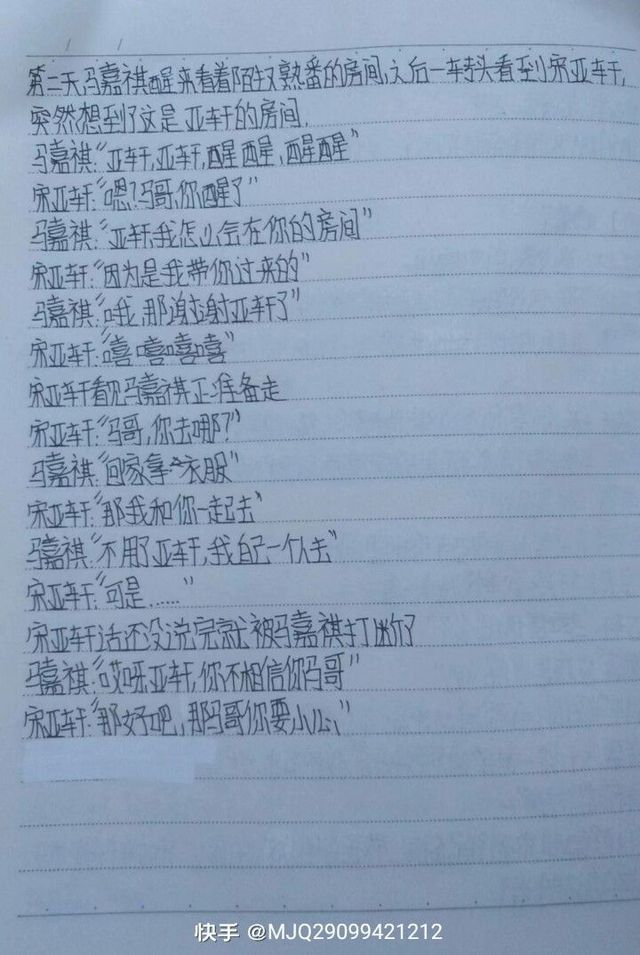 第二天,马嘉祺醒来看着陌生又熟番的房间,之后一转头看到宋亚轩,
突然想到了这是亚轩的房间,
马嘉祺:“亚轩,亚轩,醒醒,醒醒”
宋亚轩:“嗯?马哥,你醒了”
马嘉祺:“亚轩,我怎么会在你的房间”
宋亚轩:“因为是我带你过来的”
马嘉祺:“哦,那谢谢亚轩了”
宋亚轩:“嘻嘻嘻嘻”
宋亚轩看见马嘉祺正准备走
宋亚轩:“马哥,你去哪?”
马嘉祺:“回家拿衣服”
宋亚轩:“那我和你一起去”
马嘉祺:“不用了亚轩,我自己一个人去”
宋亚轩:“可是……”
宋亚轩话还没说完就被马嘉祺打断了
马嘉祺:“哎呀亚轩,你不相信你马哥”
宋亚轩:“那好吧,那马哥你要小心”
快手 @MJQ29099421212